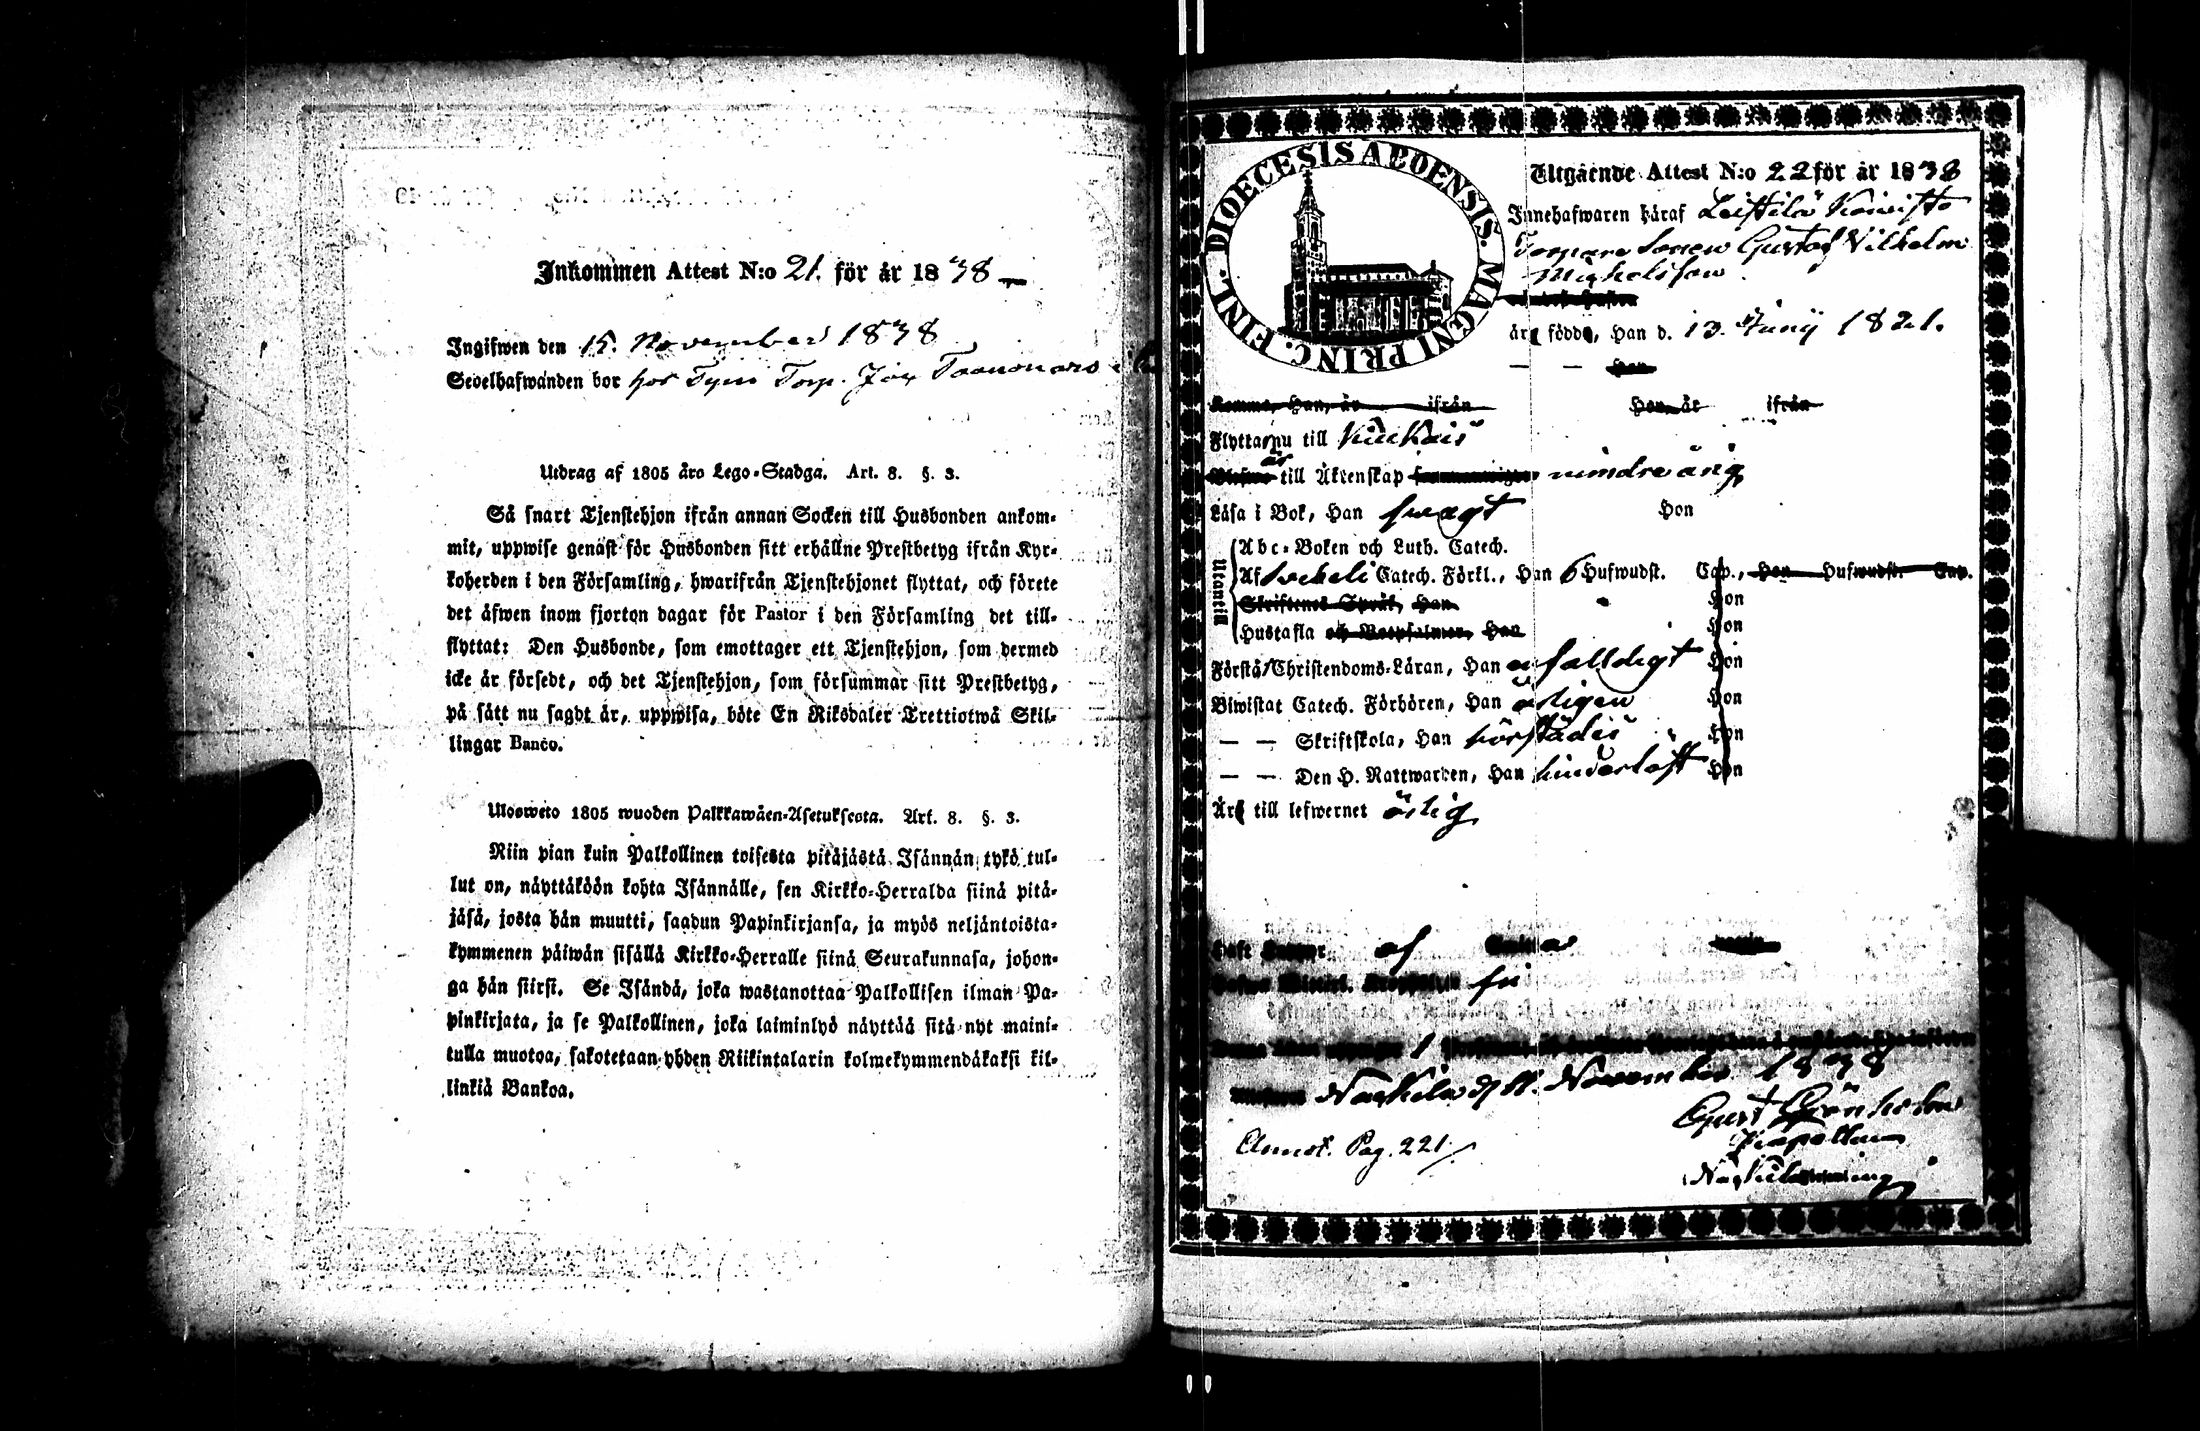 Inkommen Attest N:o 21. för år 1838
Ingifwen den 15. November 1838
Sedelhafwanden bor hos Tyni Torp. Joh
Utdrag af 1805 års Lego-Stadga. Art. 8. §. 3.
Så snart Tjenstehjon ifrån annan Socken till Husbonden ankom-
mit, uppwise genast för Husbonden sitt erhållne Prestbetyg ifrån Kyr-
koherden i den Församling, hwarifrån Tjenstehjonet flyttat, och förete
det äfwen inom fjorton dagar för Pastor i den Församling det till-
flyttat: Den Husbonde, som emottager ett Tjenstehjon, som dermed
icke är försedt, och det Tjenstehjon, som försummar sitt Prestbetyg,
på sätt nu sagdt är, uppwisa, böte En Riksdaler Trettiotwå Skil-
lingar Banco.
Ulosweto 1805 wuoden Palkkawäen-Asetuksesta. Art. 8. §. 3.
Niin pian kuin Palkollinen toisesta pitäjästä Isännän tykö tul-
lut on, näyttäköön kohta Isännälle, sen Kirkko-Herralda siinä pitä-
jäsä, josta hän muutti, saadun Papinkirjansa, ja myös neljäntoista-
kymmenen päiwän sisällä Kirkko-Herralle siinä Seurakunnasa, johon-
ga hän siirsi. Se Isändä, joka wastanottaa Palkollisen ilman Pa-
pinkirjata, ja se Palkollinen, joka laiminlyö näyttää sitä nyt maini-
tulla muotoa, sakotetaan yhden Riikintalarin kolmekymmendäkaksi kil-
linkiä Bankoa.
DIOECESIS ABOENSIS. MAGNI PRINC. FINL.
Utgående Attest N:o 22 för år 1838
Innehafwaren häraf Leistilä Koivisto
Torpare Sonen Gustaf Wilhelm
Michelsson
är född, Han d. 13. Junij 1821.
Han
Komma, Han, är ifrån Hon, är ifrån
Flyttar nu till Kiukais
är till Äktenskap mindre årig
Läsa i Bok, Han swagt Hon
Utantill
Abc-Boken och Luth. Catech.
Af Svebeli Catech. Förkl., Han 6 Hufwudst. Cap., Hon Hufwudst. Cap.
Skriftenes Språk, Han Hon
Hustafla och Botpsalmer, Han Hon
Förstå Christendoms-Läran, Han enfalldigt Hon
Biwistat Catech. Förhören, Han årligen Hon
— — Skriftskola, Han börstädes Hon
— — Den H. Nattwarden, Han hinderlöst Hon
Är till lefwernet ärlig
Haft af
fri
1
Nackila d. 11. November 1838
Annot. Pag. 221.
Gust Grönholm
Kapellan